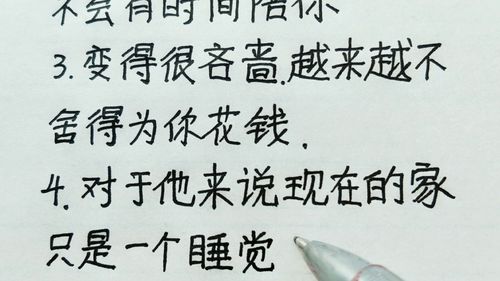 不会有时间陪你
3.变得很吝啬.越来越不
舍得为你花钱.
4.对于他来说现在的家
只是一个睡觉